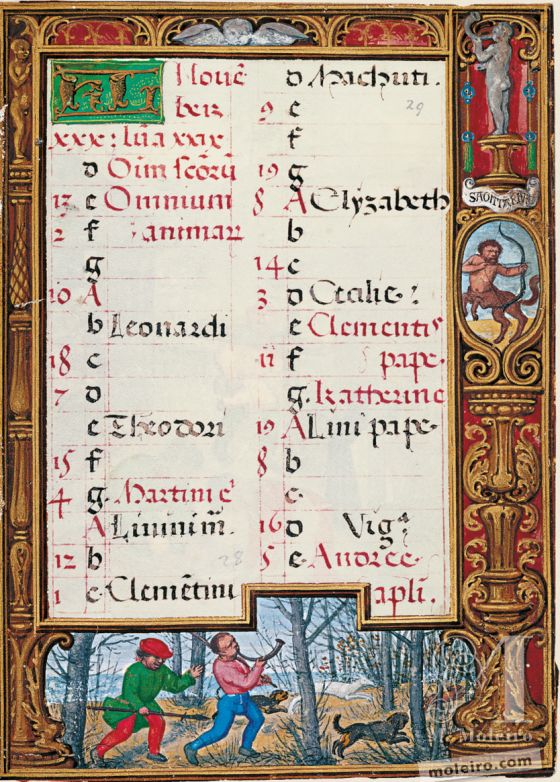 KL Nouē
ber
xxx: lūa xxix
d Oīm scōrū
13 e Omnium
2 f animar
g
10 A
b Leonardi
18 c
7 d
e Theodori
15 f
4 g Martini ē
A Liuini m̄.
12 b
1 c Clemētini
d Machuti.
29
9 e
f
19 g
8 A Elyzabeth
b
14 c
3 d Cecilie
e Clementis
11 f pape.
g. Katherine
19 A Lini pape.
8 b
c.
16 d Vig
5 e Andree
apli.
28
SAGITTARIUS
M
Moleiro
moleiro.com